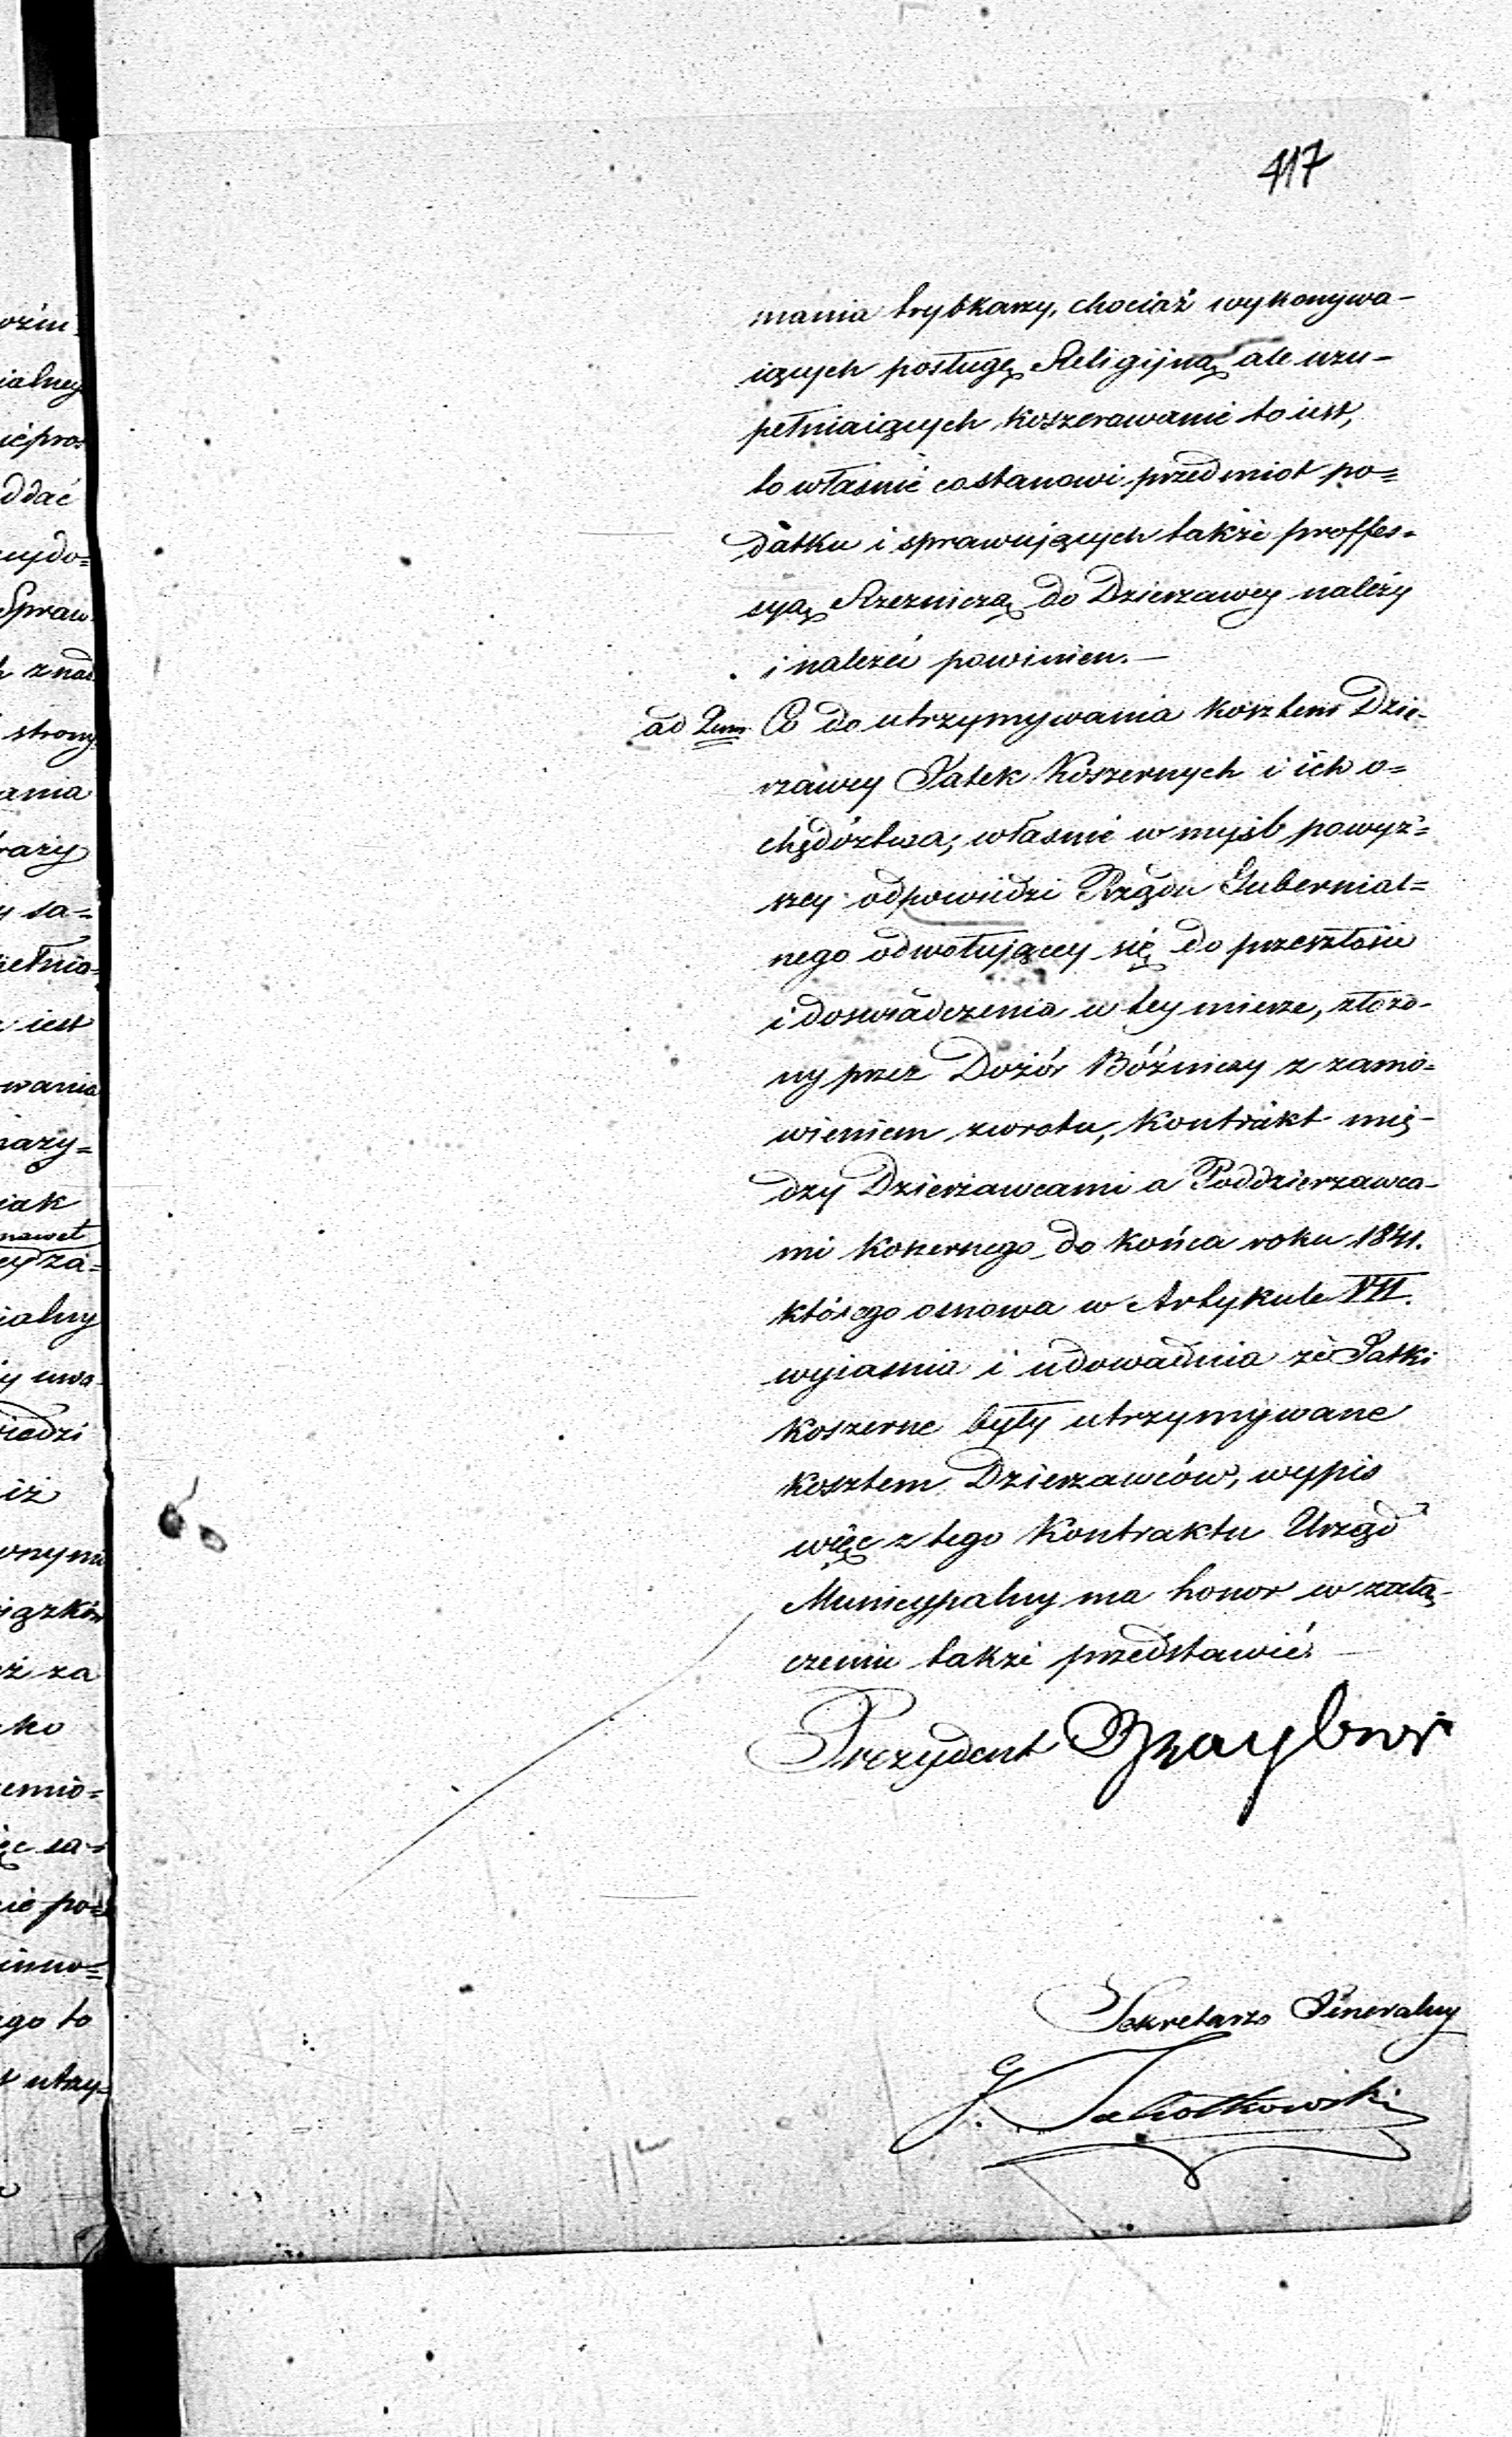 417
mania trybkarzy, chociaż wykonywa-
iących posługę Religijną ale uzu-
pełniaiących koszerowanie to iest,
to właśnie co stanowi przedmiot po=
datku i sprawujących także proffes=
syą Rzeźniczą do Dzierzawcy należy
i należeć powinien.—
ad 2um Co do utrzymywania kosztem Dzie-
rzawcy Jatek Koszernych i ich o=
chędóztwa, właśnie w myśl powyż=
szey odpowiedzi Rządu Gubernial=
nego odwołującey się do przeszłości
i doswiadczenia w tey mierze, złożo-
ny przez Dozór Bóżniczy z zamó=
wieniem zwrotu, Kontrakt mię-
dzy Dzierżawcami a Poddzierzawca-
mi koszernego do końca roku 1841.
którego osnowa w Artykule VII.
wyiasnia i udowadnia że Jatki
koszerne były utrzymywane
kosztem Dzierzawców, wypis
więc z tego Kontraktu Urząd
Municypalny ma honor w załą-
czeniu także przedstawić.—
Prezydent
Sekretarz Jeneralny
ozin
ialney
ddać
uydo=
Spraw
strony
ania
y sa=
iest
wania
iak
nawet
cy za=
ialny
iedzi
iż
onymi
iązków
ż za
emio=
ęc sa=
ie po=
inno=
ego to
utrzy=